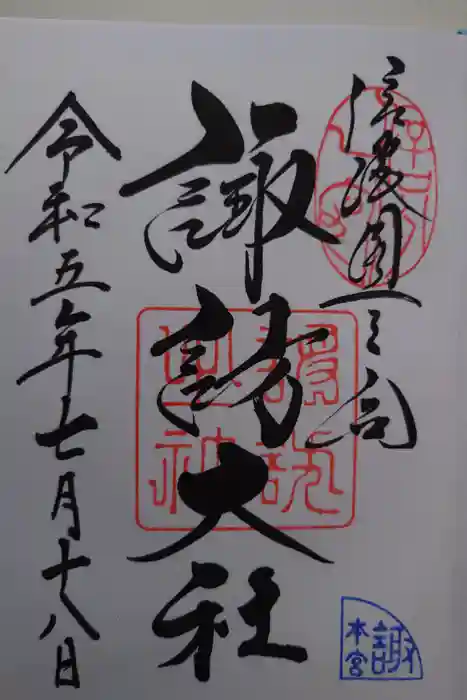 信濃國一之宮
諏訪大社
令和五年七月十八日
諏
本宮